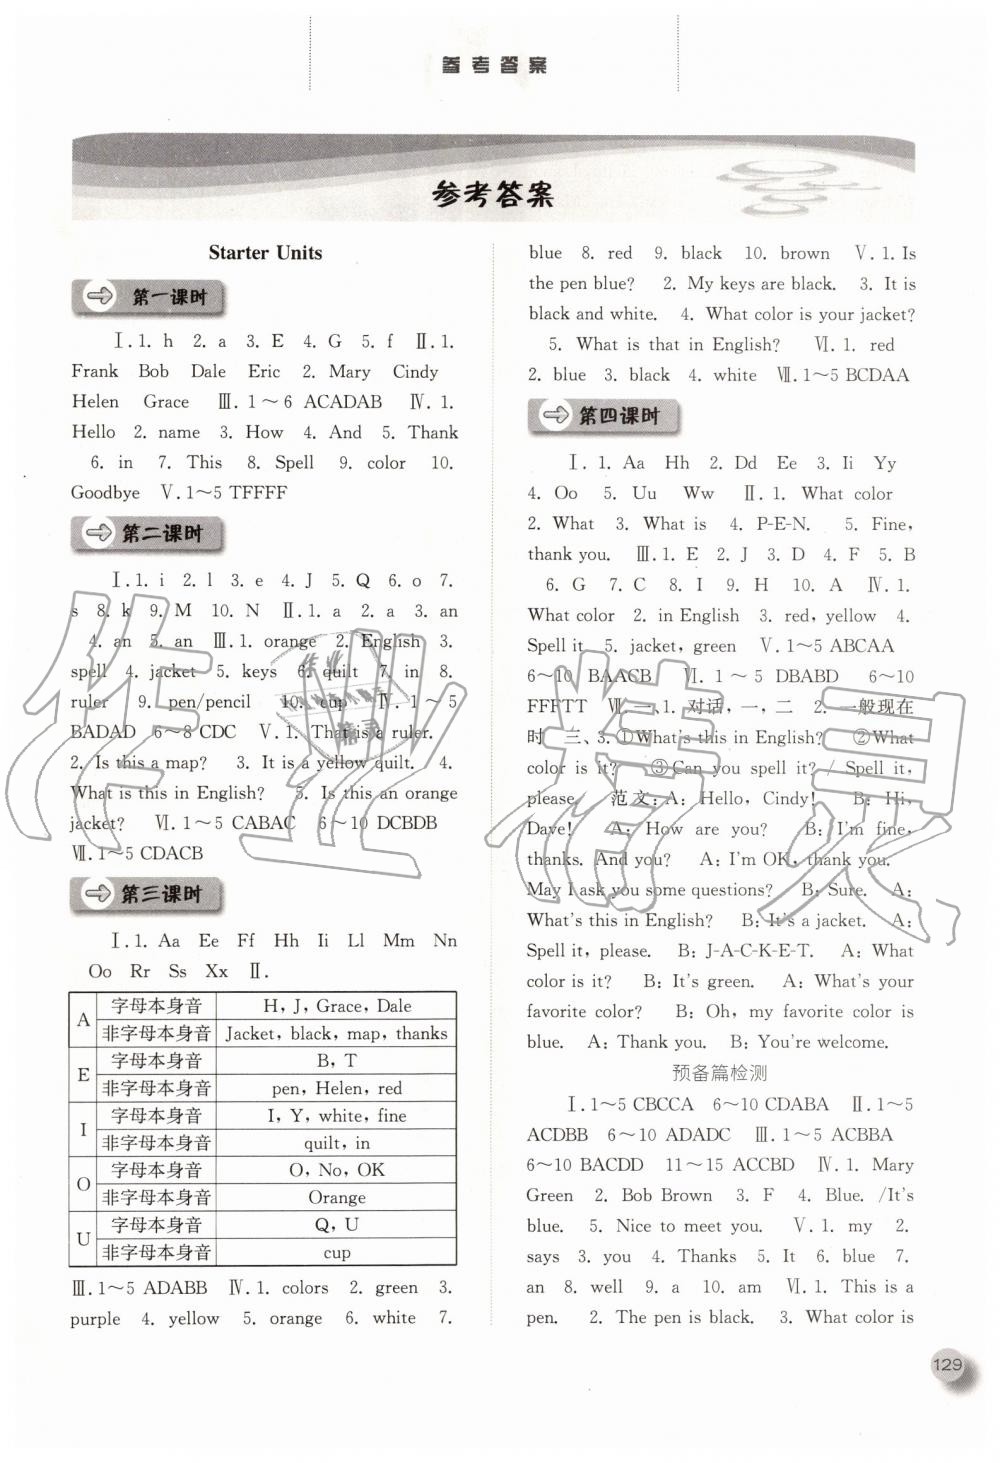 参考答案
参考答案
Starter Units
第一课时
Ⅰ.1. h 2. a 3. E 4. G 5. f Ⅱ.1.
Frank Bob Dale Eric 2. Mary Cindy
Helen Grace Ⅲ.1～6 ACADAB Ⅳ.1.
Hello 2. name 3. How 4. And 5. Thank
6. in 7. This 8. Spell 9. color 10.
Goodbye Ⅴ.1～5 TFFFF
第二课时
Ⅰ.1. i 2. l 3. e 4. J 5. Q 6. o 7.
s 8. k 9. M 10. N Ⅱ.1. a 2. a 3. an
4. an 5. an Ⅲ.1. orange 2. English 3.
spell 4. jacket 5. keys 6. quilt 7. in 8.
ruler 9. pen/pencil 10. cup Ⅳ.1～5
BADAD 6～8 CDC Ⅴ.1. That is a ruler.
2. Is this a map? 3. It is a yellow quilt. 4.
What is this in English? 5. Is this an orange
jacket? Ⅵ.1～5 CABAC 6～10 DCBDB
Ⅶ.1～5 CDACB
第三课时
Ⅰ.1. Aa Ee Ff Hh Ii Ll Mm Nn
Oo Rr Ss Xx Ⅱ.
A 字母本身音 H, J, Grace, Dale
非字母本身音 Jacket, black, map, thanks
E 字母本身音 B, T
非字母本身音 pen, Helen, red
I 字母本身音 I, Y, white, fine
非字母本身音 quilt, in
O 字母本身音 O, No, OK
非字母本身音 Orange
U 字母本身音 Q, U
非字母本身音 cup
Ⅲ.1～5 ADABB Ⅳ.1. colors 2. green 3.
purple 4. yellow 5. orange 6. white 7.
blue 8. red 9. black 10. brown Ⅴ.1. Is
the pen blue? 2. My keys are black. 3. It is
black and white. 4. What color is your jacket?
5. What is that in English? Ⅵ.1. red
2. blue 3. black 4. white Ⅶ.1～5 BCDAA
第四课时
Ⅰ.1. Aa Hh 2. Dd Ee 3. Ii Yy
4. Oo 5. Uu Ww Ⅱ.1. What color
2. What 3. What is 4. P-E-N. 5. Fine,
thank you. Ⅲ.1. E 2. J 3. D 4. F 5. B
6. G 7. C 8. I 9. H 10. A Ⅳ.1.
What color 2. in English 3. red, yellow 4.
Spell it 5. jacket, green Ⅴ.1～5 ABCAA
6～10 BAACB Ⅵ.1～5 DBABD 6～10
FFFTT Ⅶ 一、1. 对话，一，二 2. 一般现在
时 三、3.①What's this in English? ②What
color is it? ③Can you spell it? / Spell it,
please. 范文：A: Hello, Cindy! B: Hi,
Dave! A: How are you? B: I'm fine,
thanks. And you? A: I'm OK, thank you.
May I ask you some questions? B: Sure. A:
What's this in English? B: It's a jacket. A:
Spell it, please. B: J-A-C-K-E-T. A: What
color is it? B: It's green. A: What's your
favorite color? B: Oh, my favorite color is
blue. A: Thank you. B: You're welcome.
预备篇检测
Ⅰ.1～5 CBCCA 6～10 CDABA Ⅱ.1～5
ACDBB 6～10 ADADC Ⅲ.1～5 ACBBA
6～10 BACDD 11～15 ACCBD Ⅳ.1. Mary
Green 2. Bob Brown 3. F 4. Blue. /It's
blue. 5. Nice to meet you. Ⅴ.1. my 2.
says 3. you 4. Thanks 5. It 6. blue 7.
an 8. well 9. a 10. am Ⅵ.1. This is a
pen. 2. The pen is black. 3. What color is
129
作业精灵